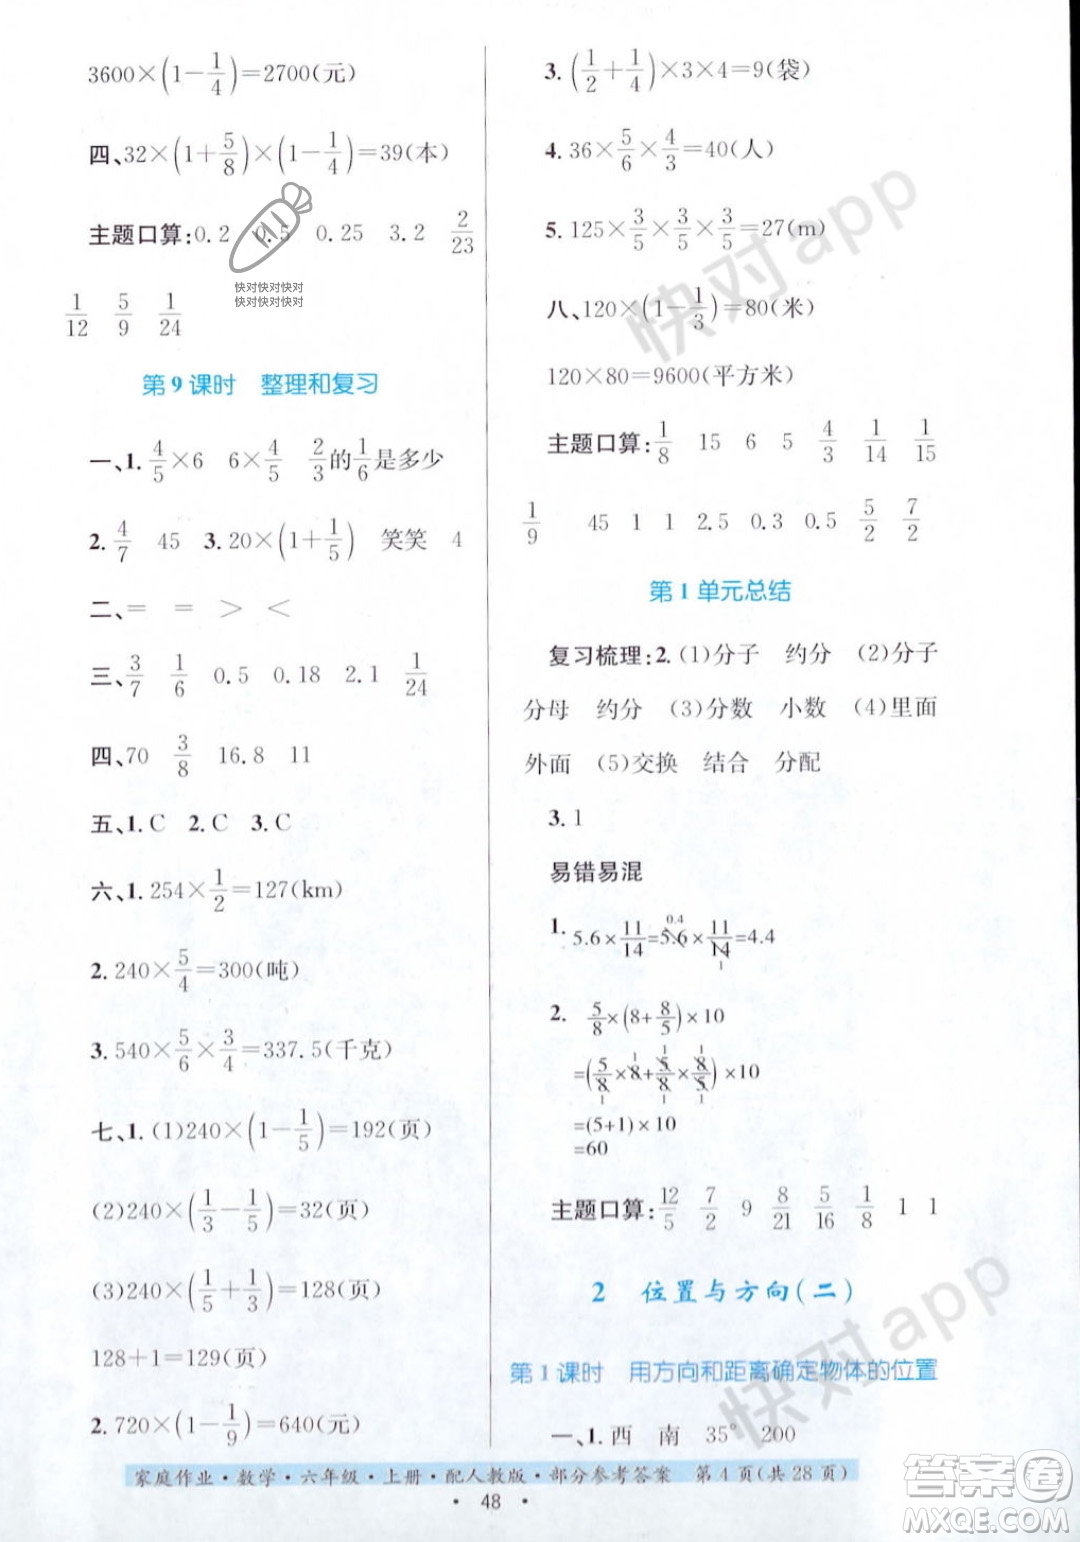 3600×(1−1/4)=2700(元)
四、32×(1+5/8)×(1−1/4)=39(本)
主题口算:0.2 0.5 0.25 3.2 2/23
快对快对快对
快对快对快对
1/12 5/9 1/24
第 9 课时 整理和复习
一、1. 4/5×6 6×4/5 2/3的1/6是多少
2. 4/7 45 3. 20×(1+1/5) 笑笑 4
二、= = > <
三、3/7 1/6 0.5 0.18 2.1 1/24
四、70 3/8 16.8 11
五、1. C 2. C 3. C
六、1. 254×1/2=127(km)
2. 240×5/4=300(吨)
3. 540×5/6×3/4=337.5(千克)
七、1. (1)240×(1−1/5)=192(页)
(2)240×(1/3−1/5)=32(页)
(3)240×(1/5+1/3)=128(页)
128+1=129(页)
2. 720×(1−1/9)=640(元)
3. (1/2+1/4)×3×4=9(袋)
4. 36×5/6×4/3=40(人)
5. 125×3/5×3/5×3/5=27(m)
八、120×(1−1/3)=80(米)
120×80=9600(平方米)
主题口算:1/8 15 6 5 4/3 1/14 1/15
1/9 45 1 1 2.5 0.3 0.5 5/2 7/2
第 1 单元总结
复习梳理:2. (1)分子 约分 (2)分子
分母 约分 (3)分数 小数 (4)里面
外面 (5)交换 结合 分配
3. 1
易错易混
1. 5.6×11/14=5.6×11/14=4.4
0.4
1
2. 5/8×(8+8/5)×10
=(5/8×8+5/8×8/5)×10
1 1 1
1 1 1
=(5+1)×10
=60
主题口算:12/5 7/2 9 8/21 5/16 1/8 1 1
2 位置与方向(二)
第 1 课时 用方向和距离确定物体的位置
一、1. 西 南 35° 200
家庭作业·数学·六年级·上册·配人教版·部分参考答案 第 4 页(共 28 页)
· 48 ·
快对app
快对app
答案圈
MXQE.COM